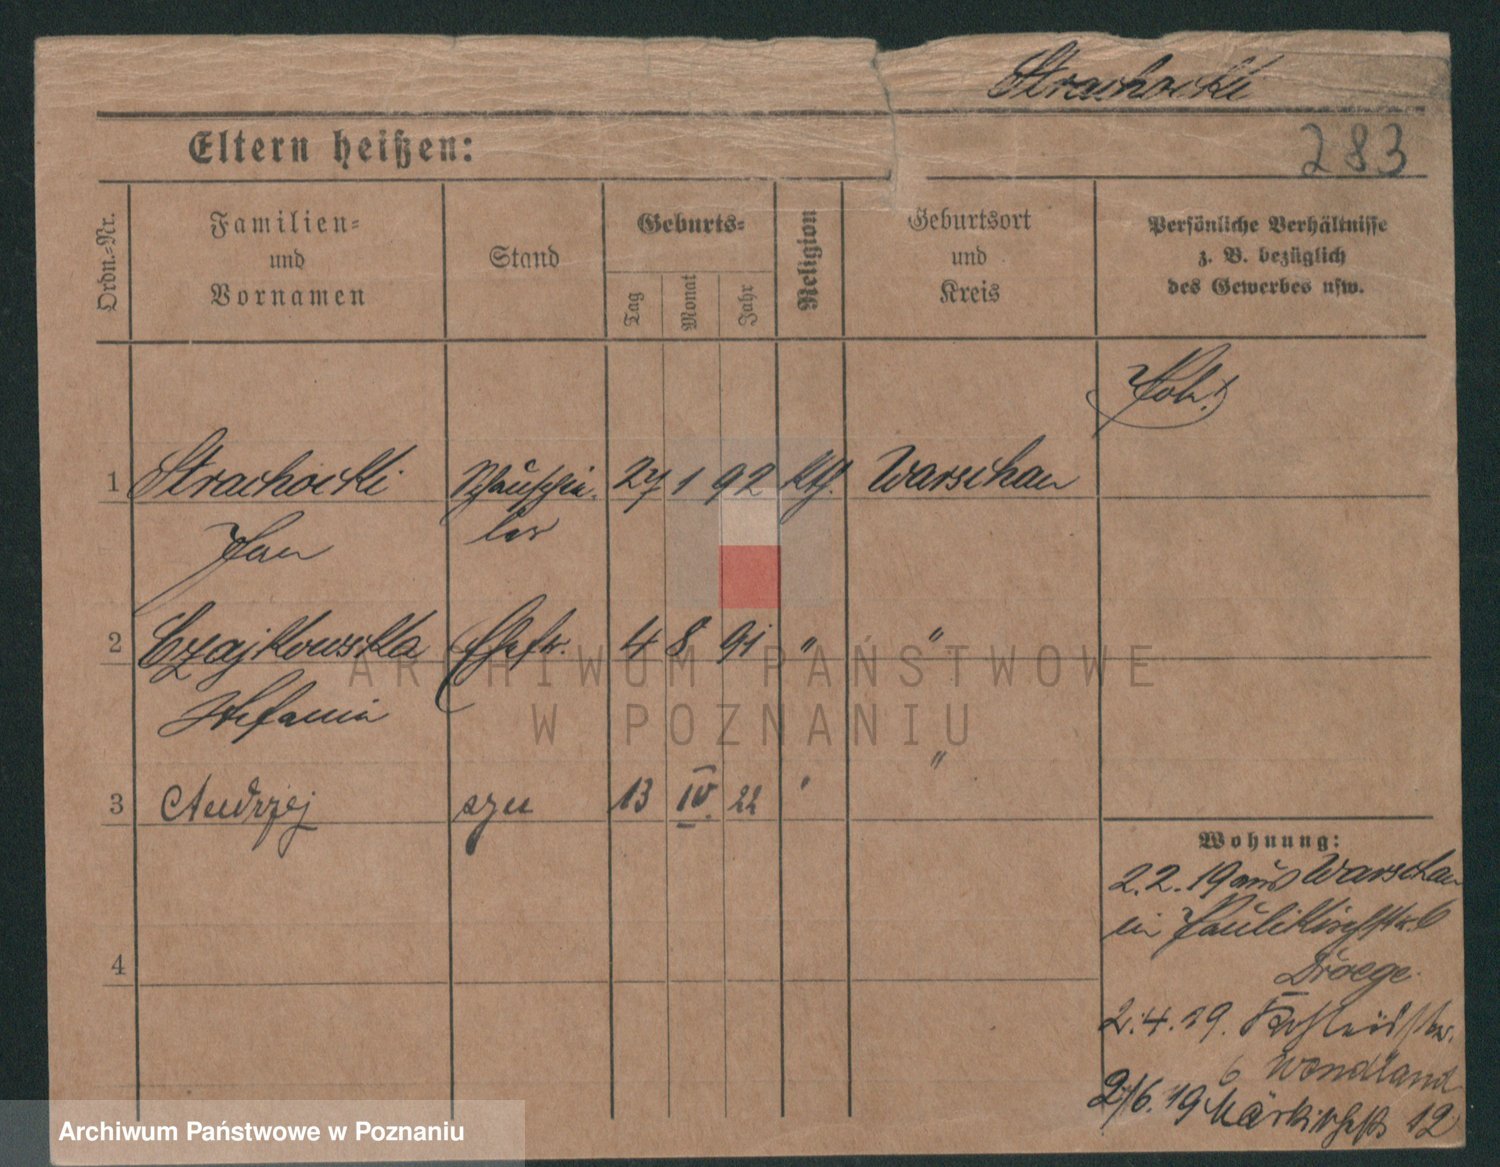 Strachocki
Eltern heißen:
283
Ordn.-Nr.
Familien-
und
Vornamen
Stand
Geburts-
Tag
Monat
Jahr
Religion
Geburtsort
und
Kreis
Persönliche Verhältnisse
z. B. bezüglich
des Gewerbes usw.
1 Strachocki Schauspie- 27 1 92 kth. Warschau
Jan ler
2 Czajkowska Ehefr. 4 8 91 " "
Stefania
"
3 Andrzej syn 13 IV. 22 "
Wohnung:
2.2.19 aus Warschau
in Paulikirchstr. 6
Draege.
2.4.19.
6 Wendland
2/6.19 12
4
ARCHIWUM PAŃSTWOWE
W POZNANIU
Archiwum Państwowe w Poznaniu